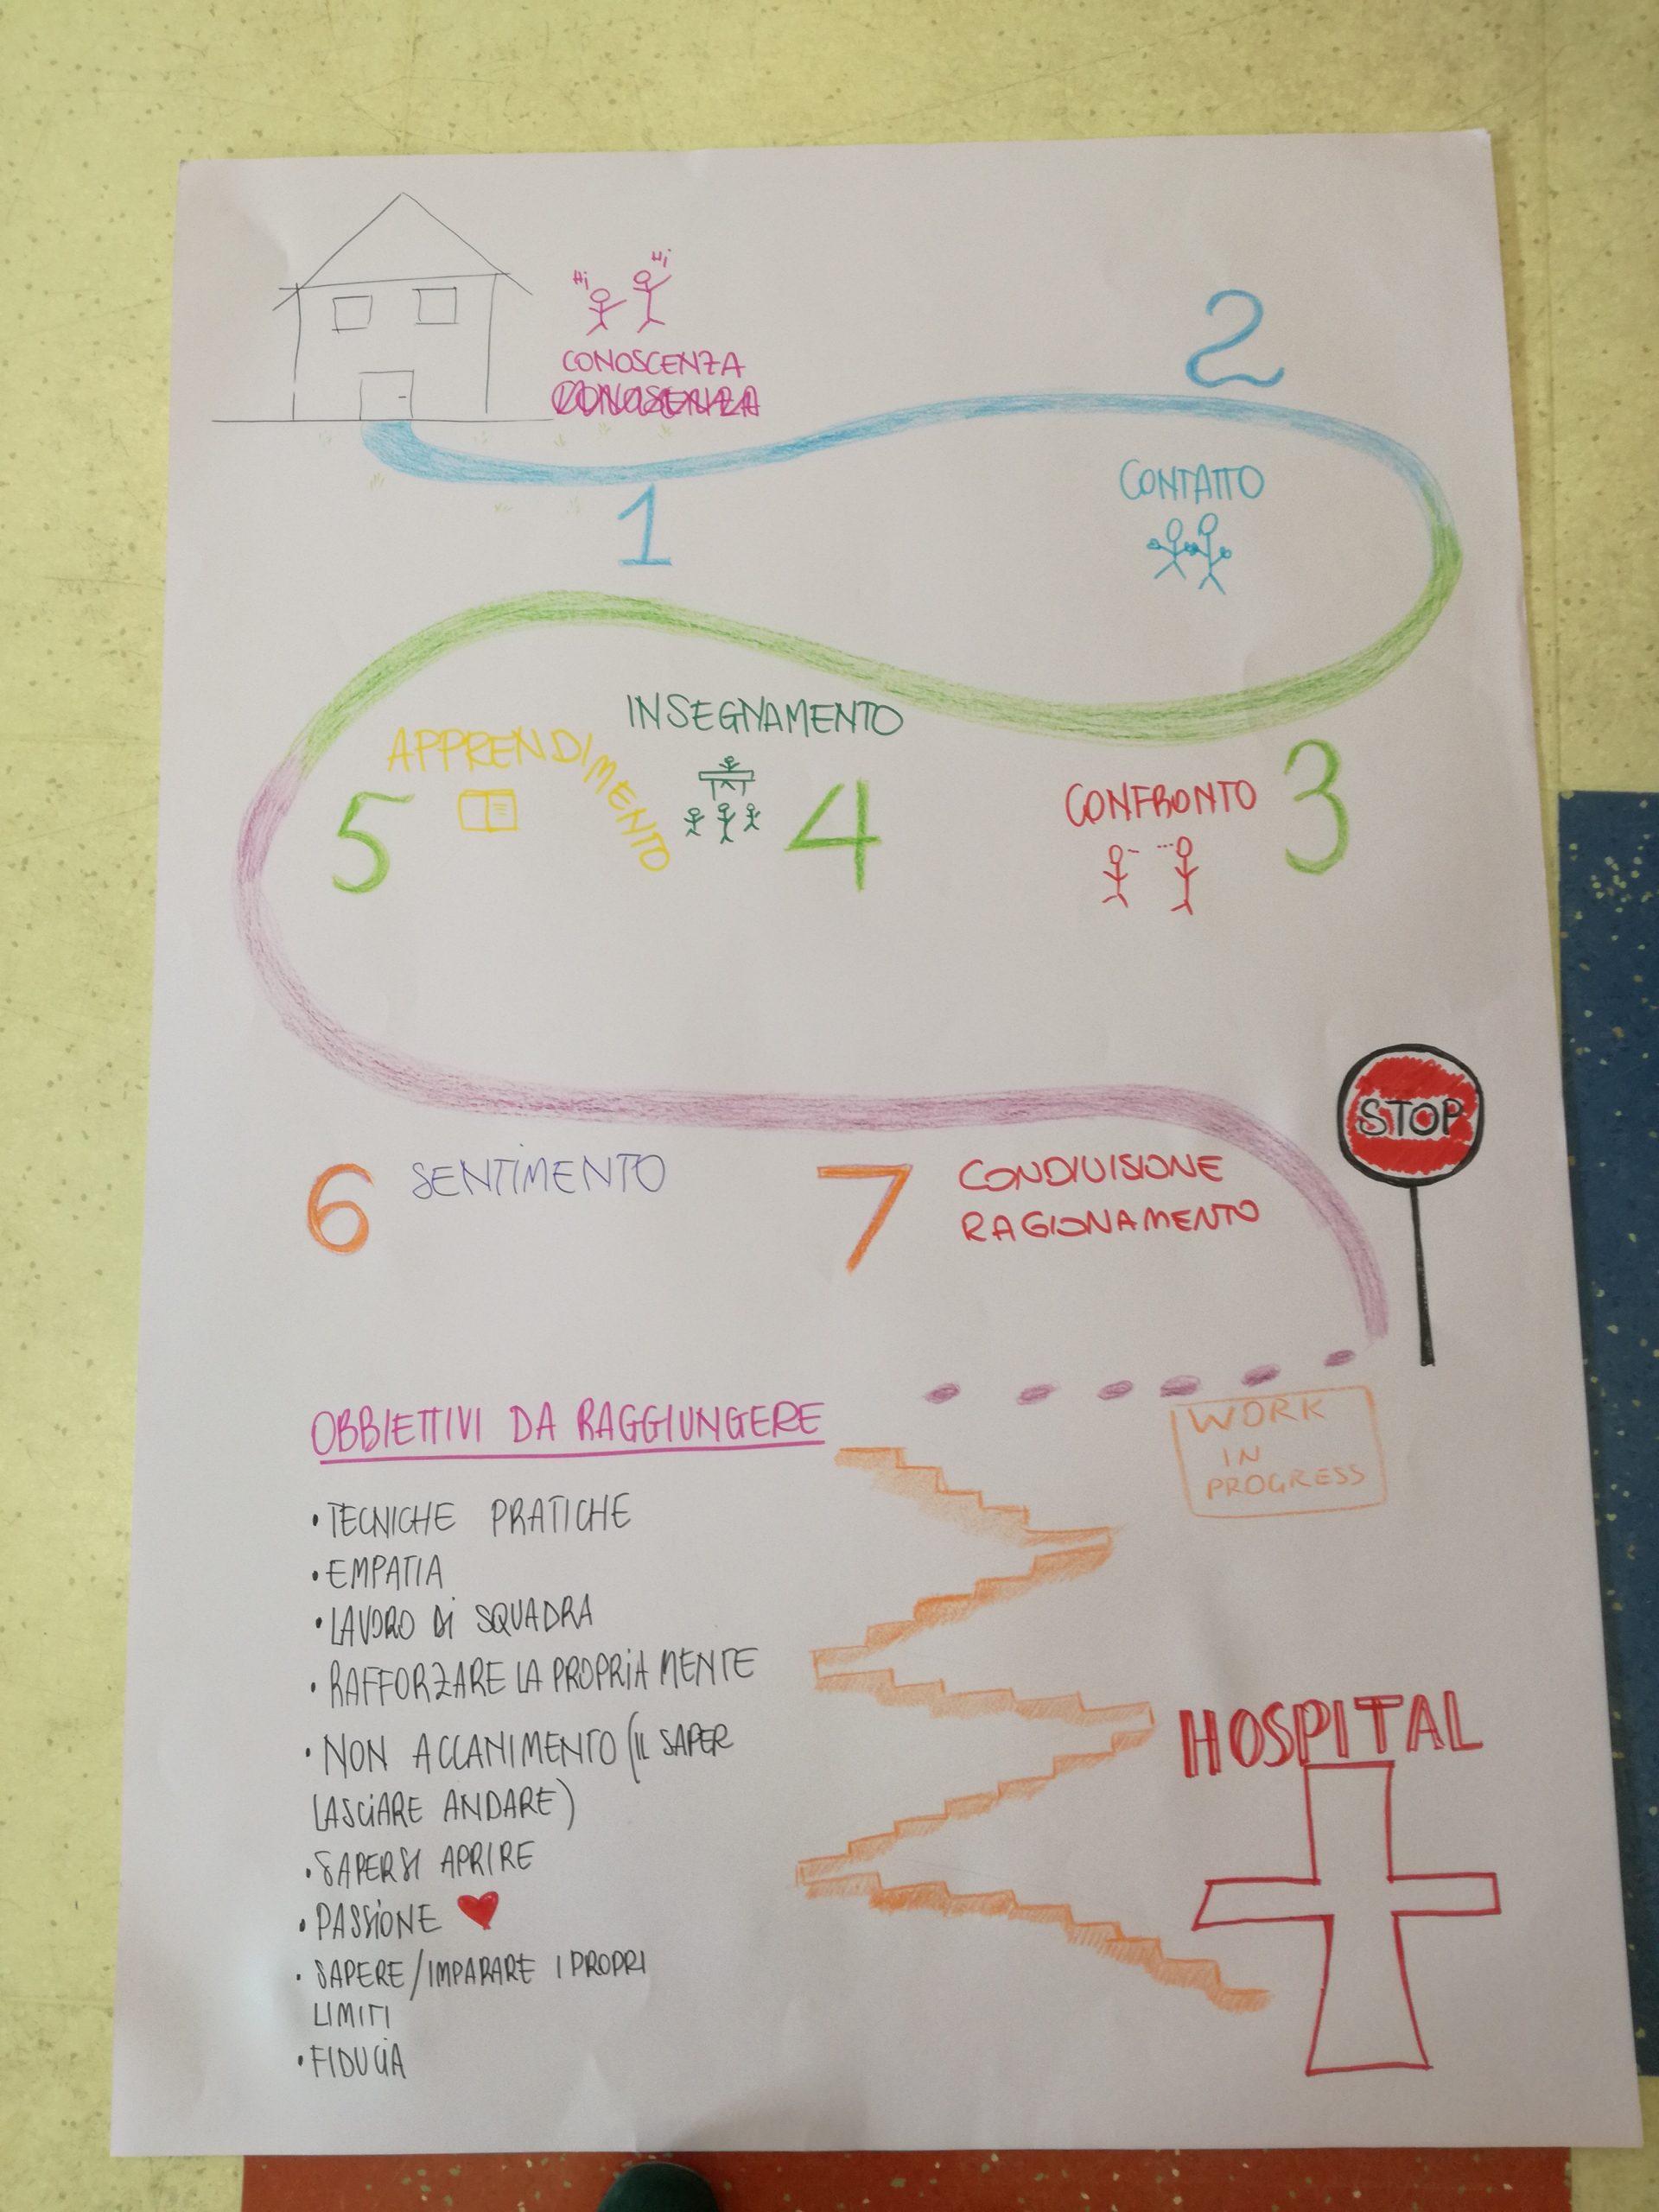 Hi Hi
CONOSCENZA
1
2
CONTATTO
3
CONFRONTO
4
INSEGNAMENTO
5
APPRENDIMENTO
6 SENTIMENTO
7 CONDIVISIONE
RAGIONAMENTO
STOP
WORK
IN
PROGRESS
OBBIETTIVI DA RAGGIUNGERE
• TECNICHE PRATICHE
• EMPATIA
• LAVORO Di SQUADRA
• RAFFORZARE LA PROPRiA MENTE
• NON ACCANIMENTO (IL SAPER
LASCiARE ANDARE)
• SAPERSI APRIRE
• PASSiONE
• SAPERE/IMPARARE I PROPRI
LIMITI
• FIDUCIA
HOSPITAL